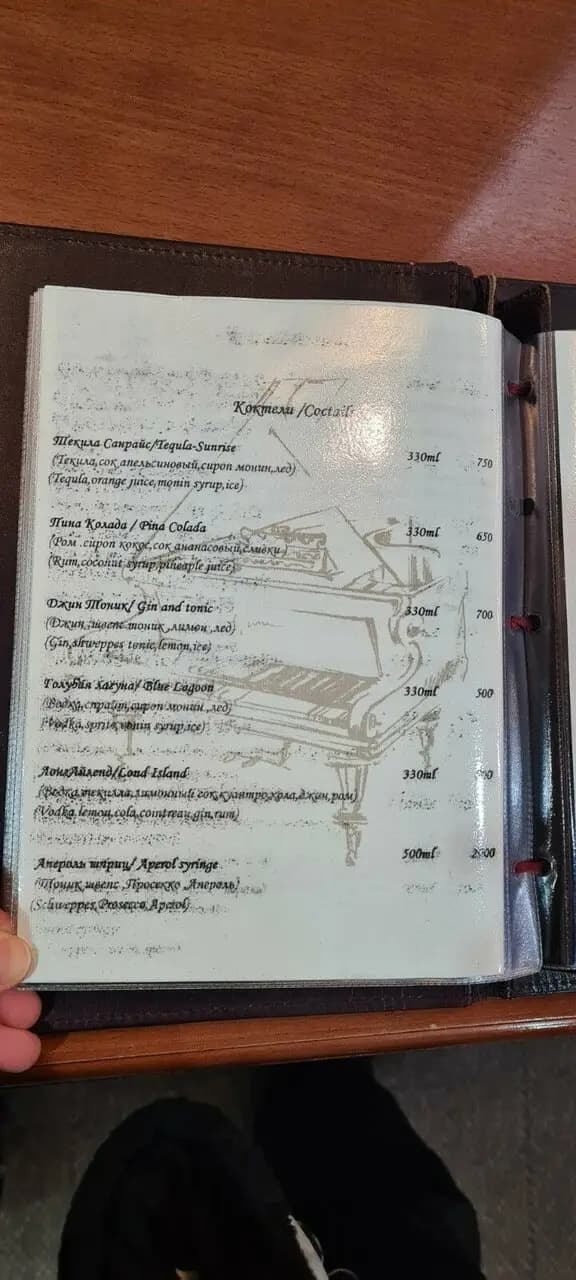 Коктели /Coctails
Текила Санрайс/Tequla-Sunrise 330ml 750
(Текила,сок апельсиновый,сироп монин,лед)
(Tequla,orange juice,monin syrup,ice)
Пина Колада / Pina Colada 330ml 650
(Ром .сироп кокос,сок ананасовый,сливки)
(Rum,coconut syrup,pineaple juice)
Джин Тоник/ Gin and tonic 330ml 700
(Джин ,швепс тоник ,лимон ,лед)
(Gin,shweppes tonic,lemon,ice)
Голубая лагуна/ Blue Lagoon 330ml 500
(Водка,спрайт,сироп монин ,лед)
(Vodka,sprite,monin syrup,ice)
ЛонгАйленд/Lond Island 330ml
(Водка,текилла,лимонный сок,куантро,кола,джин,ром)
(Vodka,lemon,cola,cointreau,gin,rum)
Апероль шприц/ Aperol syringe 500ml
(Тоник швепс ,Просекко ,Апероль)
(Schweppes,Prosecco,Aperol)